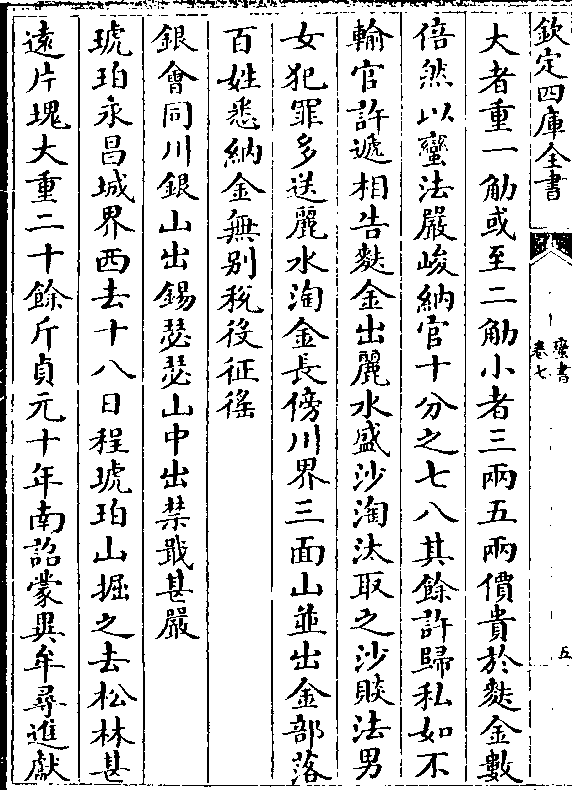 欽定四庫全書
蠻書
卷七
五
大者重一觔或至二觔小者三兩五兩價貴於麩金數
倍然以蠻法嚴峻納官十分之七八其餘許歸私如不
輸官許遞相告麩金出麗水盛沙淘汰取之沙賧法男
女犯罪多送麗水淘金長傍川界三面山並出金部落
百姓悉納金無别稅役征徭
銀會同川銀山出錫瑟瑟山中出禁戢甚嚴
琥珀永昌城界西去十八日程琥珀山掘之去松林甚
遠片塊大重二十餘斤貞元十年南詔蒙異牟尋進獻